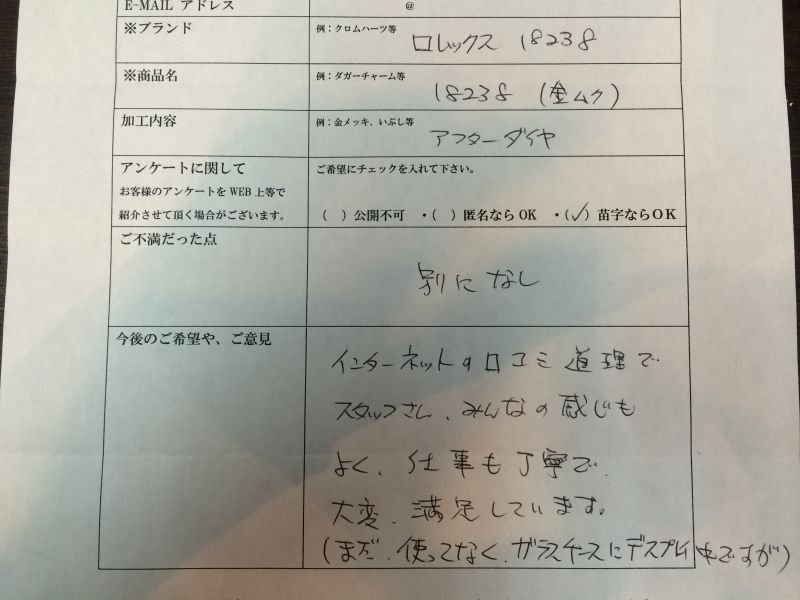 E-MAIL アドレス @
※ブランド 例：クロムハーツ等
ロレックス 18238
※商品名 例：ダガーチャーム等
18238 (金ムク)
加工内容 例：金メッキ、いぶし等
アフターダイヤ
アンケートに関して ご希望にチェックを入れて下さい。
お客様のアンケートをWEB上等で
紹介させて頂く場合がございます。 （ ）公開不可 ・（ ）匿名ならOK ・（✓）苗字ならOK
ご不満だった点
別になし
今後のご希望や、ご意見
インターネットの口コミ道理で
スタッフさん、みんなの感じも
よく、仕事も丁寧で、
大変、満足しています。
(まだ、使ってなく、ガラスケースにデスプレイ中ですが)